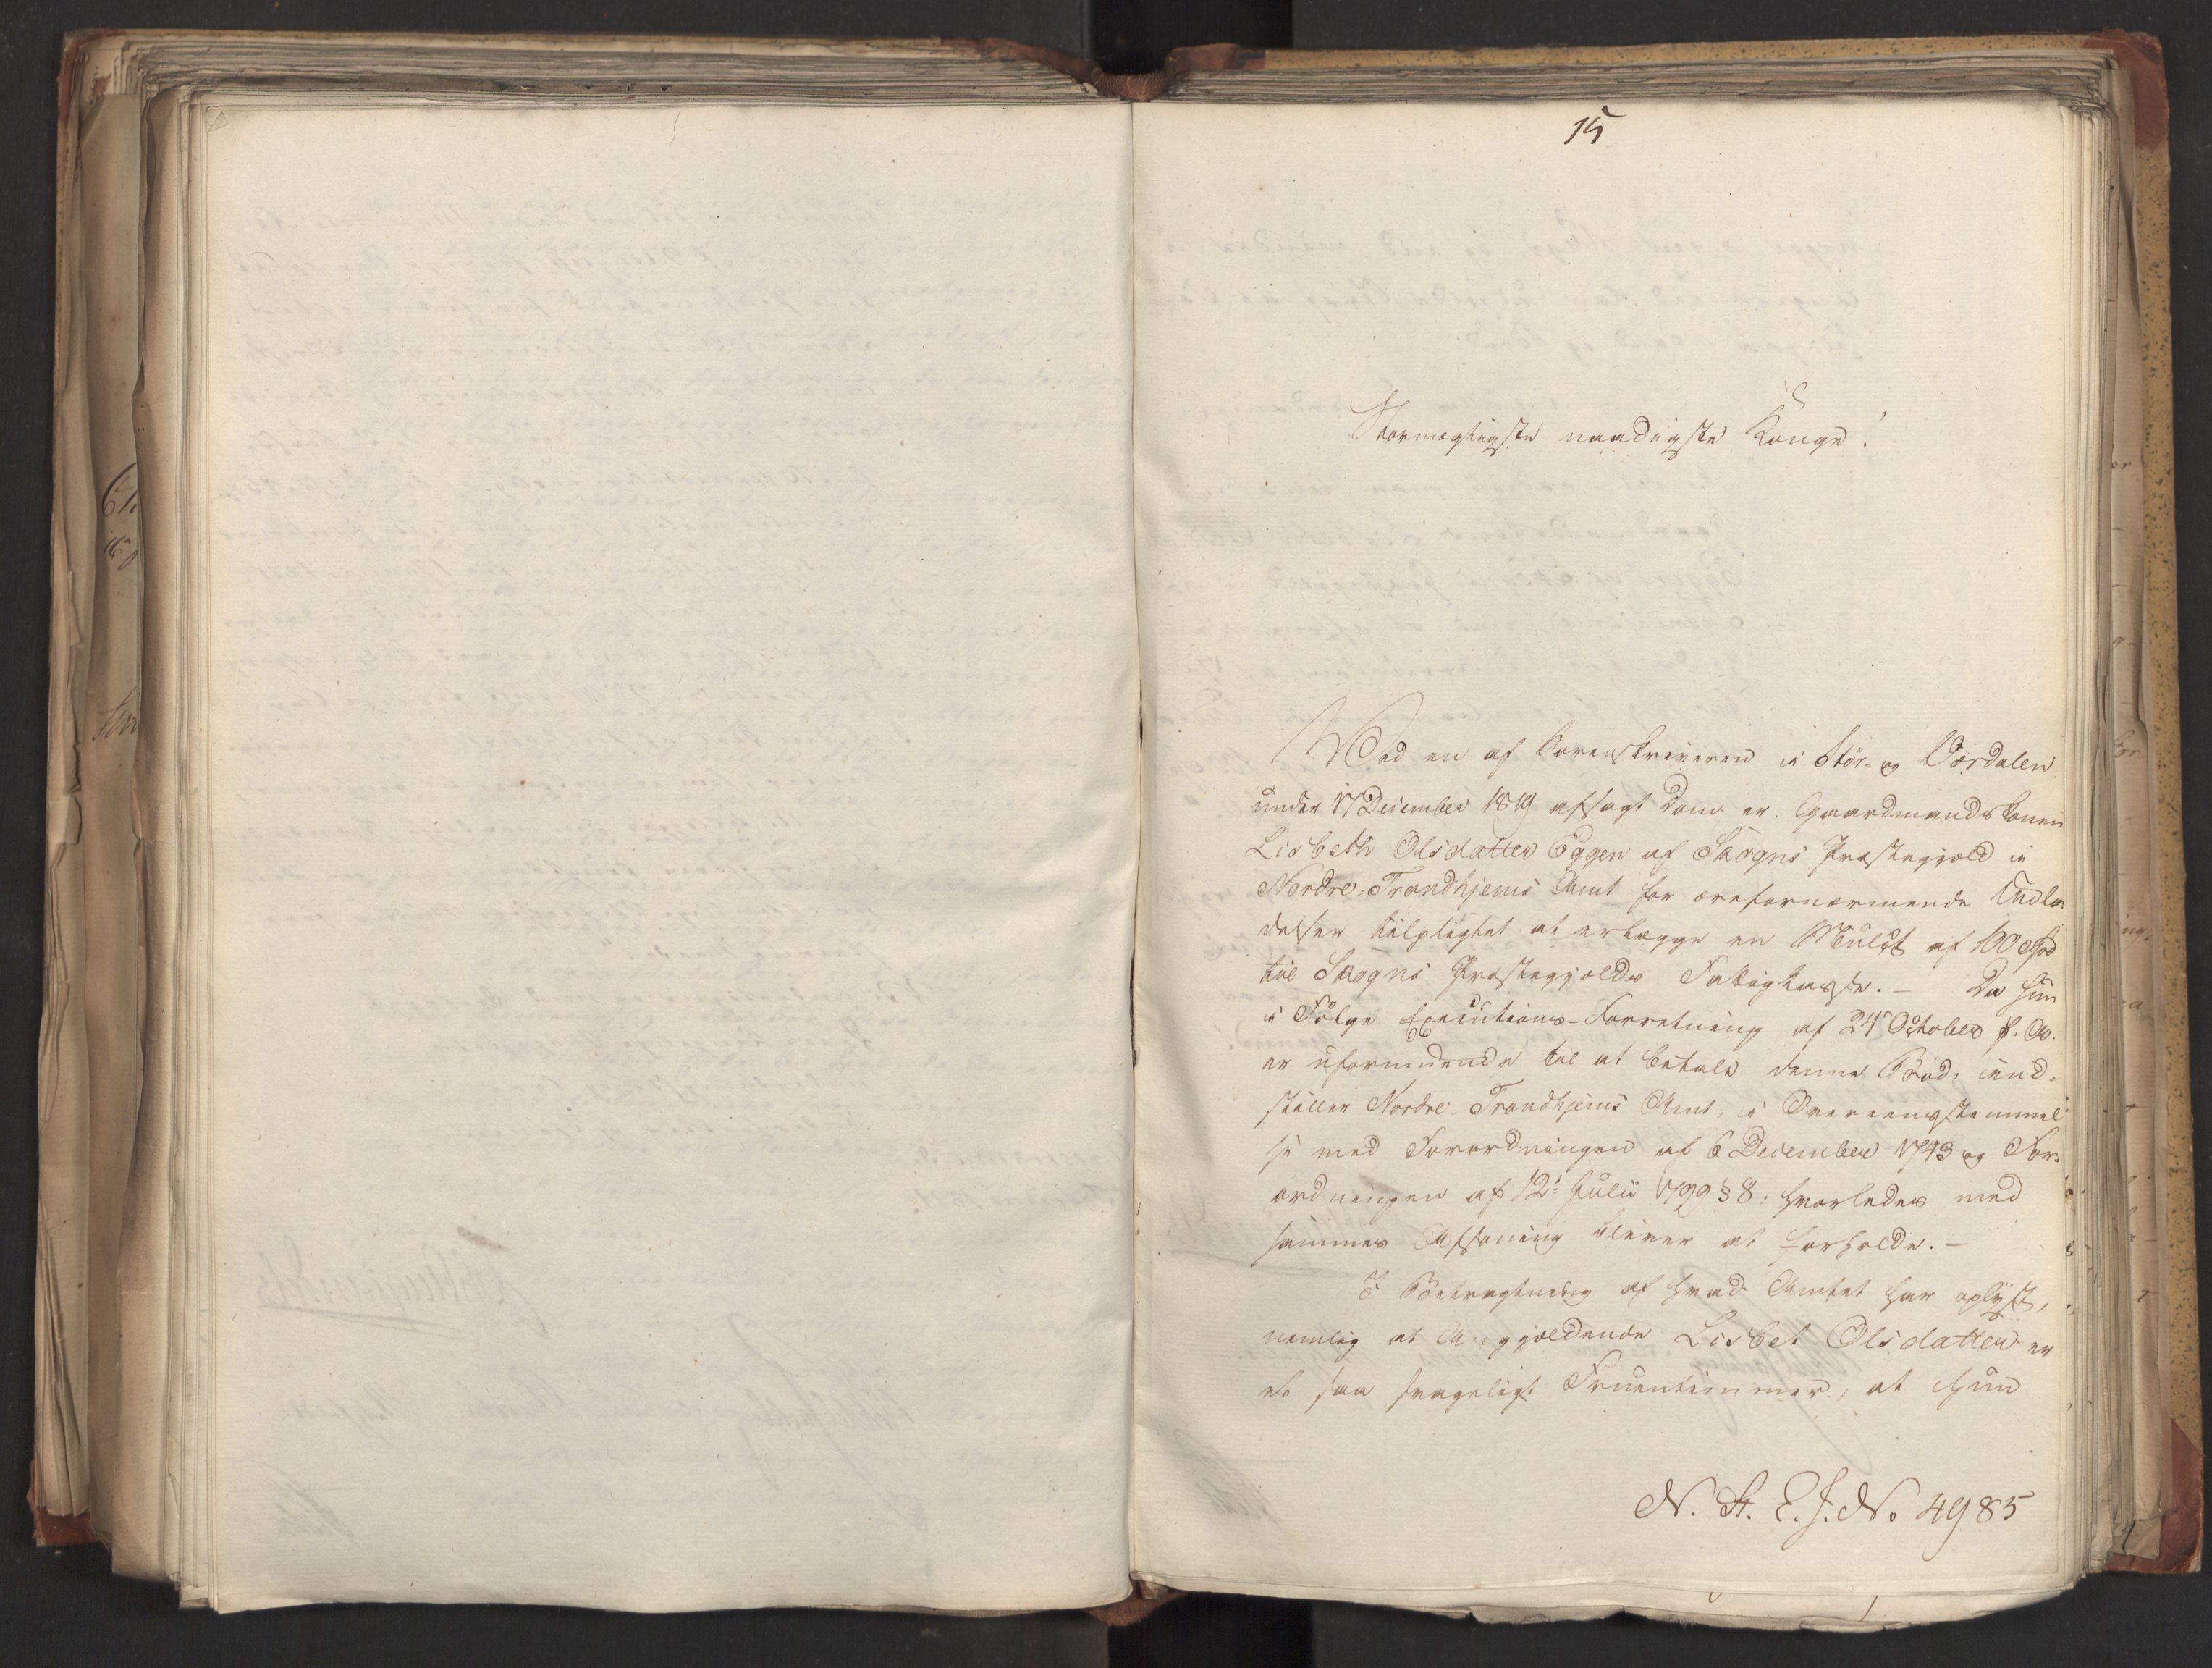 15
Stormægtigste naadigste Konge!
Ved en af Sorenskriveren i Stör- og Værdalen
under 17 December 1819 afsagt Dom er Gaardmandskonen
Lisbeth Olsdatter Eggen af Skogns Præstegjæld i
Nordre Trondhjems Amt for ærefornærmende Udla
delser tilpligtet at erlægge en Mulct af 100 Spd
til Skogns Præstegjælds Fattigkasse. – Da hun
i Fölge Executions-Forretning af 24 October f. A.
er uformuende til at betale denne Bod, ind-
stiller Nordre Trondhjems Amt, i Overeensstemmel
se med Forordningen af 6 December 1743 og For-
ordningen af 12te Julii 1799 § 8, hvorledes med
sammes Afsoning bliver at forholde. –
I Betragtning af hvad Amtet har oplyst,
nemlig at Angjældende Lisbet Olsdatter er
et saa svageligt Fruentimmer, at hun
N. St. E. J. No 4985